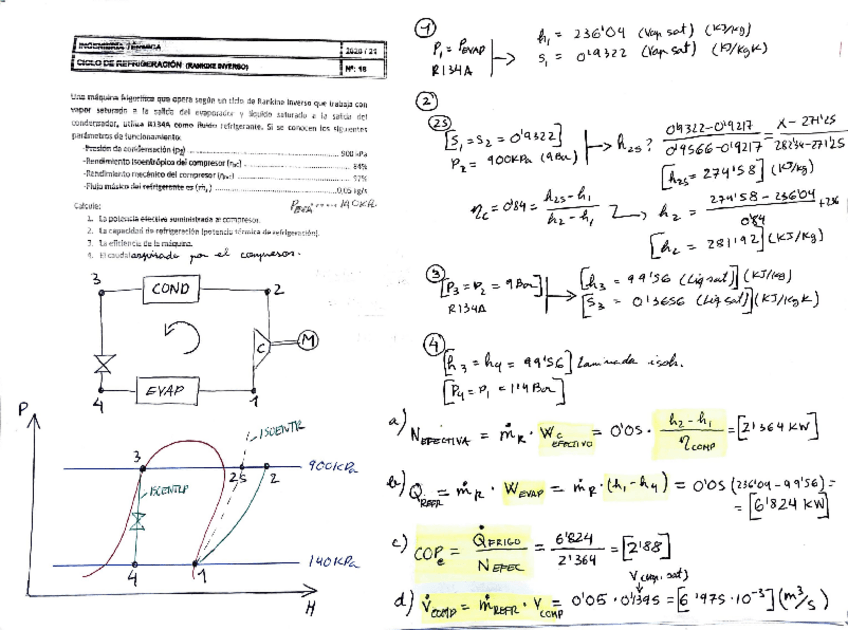 INGENIERÍA TÉRMICA
2020 / 21
CICLO DE REFRIGERACIÓN (RANKINE INVERSO)
Nº: 16
Una máquina frigorífica que opera según un ciclo de Rankine Inverso que trabaja con
vapor saturado a la salida del evaporador y líquido saturado a la salida del
condensador, utiliza R134A como fluido refrigerante. Si se conocen los siguientes
parámetros de funcionamiento:
-Presión de condensación ... 900 kPa
-Rendimiento isoentrópico del compresor ... 84%
-Rendimiento mecánico del compresor
-Flujo másico del refrigerante es ... 0,05 kg/s
140KPa
Calcule:
1. La potencia efectiva suministrada al compresor.
2. La capacidad de refrigeración (potencia térmica de refrigeración).
3. La eficiencia de la máquina.
4. El caudal aspirado por el compresor.
3 COND 2
C M
4 EVAP 1
P
ISOENTR
3 2s 2 900KPa
ISOENTP
4 1 140KPa
H
1
P₁ = P_EVAP
R134A
h₁ = 236'04 (Vap sat) (KJ/kg)
s₁ = 0'9322 (Vap sat) (KJ/kgK)
2
2s
[s₁ = s₂ = 0'9322]
P₂ = 900KPa (9Bar)
h₂s ?
0'9322-0'9217 / 0'9566-0'9217 = X-271'25 / 282'34-271'25
[h₂s = 274'58] (KJ/kg)
η_c = 0'84 = h₂s-h₁ / h₂-h₁
h₂ = 274'58 - 236'04 / 0'84 + 236
[h₂ = 281'92] (KJ/Kg)
3
[P₃ = P₂ = 9Bar]
R134A
[h₃ = 99'56 (Liq sat)] (KJ/kg)
[s₃ = 0'3656 (Liq sat)] (KJ/kgK)
4
[h₃ = h₄ = 99'56] Laminado isoh.
[P₄ = P₁ = 1'4 Bar]
a) N_EFECTIVA = ṁ_R · W_C EFECTIVO = 0'05 · h₂-h₁ / η_COMP = [2'364 KW]
b) Q̇_REFR = ṁ_R · W_EVAP = ṁ_R · (h₁-h₄) = 0'05 (236'04-99'56) =
= [6'824 KW]
c) COP_e = Q̇_FRIGO / N_EFEC = 6'824 / 2'364 = [2'88]
V (vap. sat)
d) V̇_COMP = ṁ_REFR · V_COMP = 0'05 · 0'1395 = [6'975·10⁻³] (m³/s)